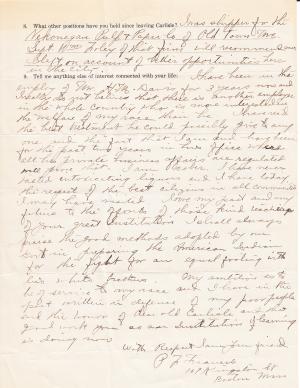 8. What other positions have you held since leaving Carlisle? I was shipper for the
Pulp & Paper Co of Old town Me
Sept Wm of that firm will recommend me
on account of other opportunities here
in the city.
9. Tell me anything else of interest connected with your life. I have been in the
employ of Mr. Davis for 3 years now and
that there is another employer
in the whole country that is more interested in
the welfare of my race than he. I received
the best treatment he could possibly give to any
one and the fact that I am and have been
for the past years in his office where
all his private business affairs are regulated
will prove that I am sober. I have never
tasted intoxicating liquor and I have today
the respect of the best citizens in all communities
I may have visited. I owe my past and my
future to the efforts of those kind teachers
of your great Institution. I shall always
praise the good methods adopted by our
in preparing the American Indian
for the fight for an equal footing with
his white brothers. My ambition is to
be of service to my race and I have in the
past written in defense of my poor people
and the honor of dear old Carlisle and the
good work you as an Institution of learning
is doing now
With Respect I am your friend
P
Kingston St
Boston Mass